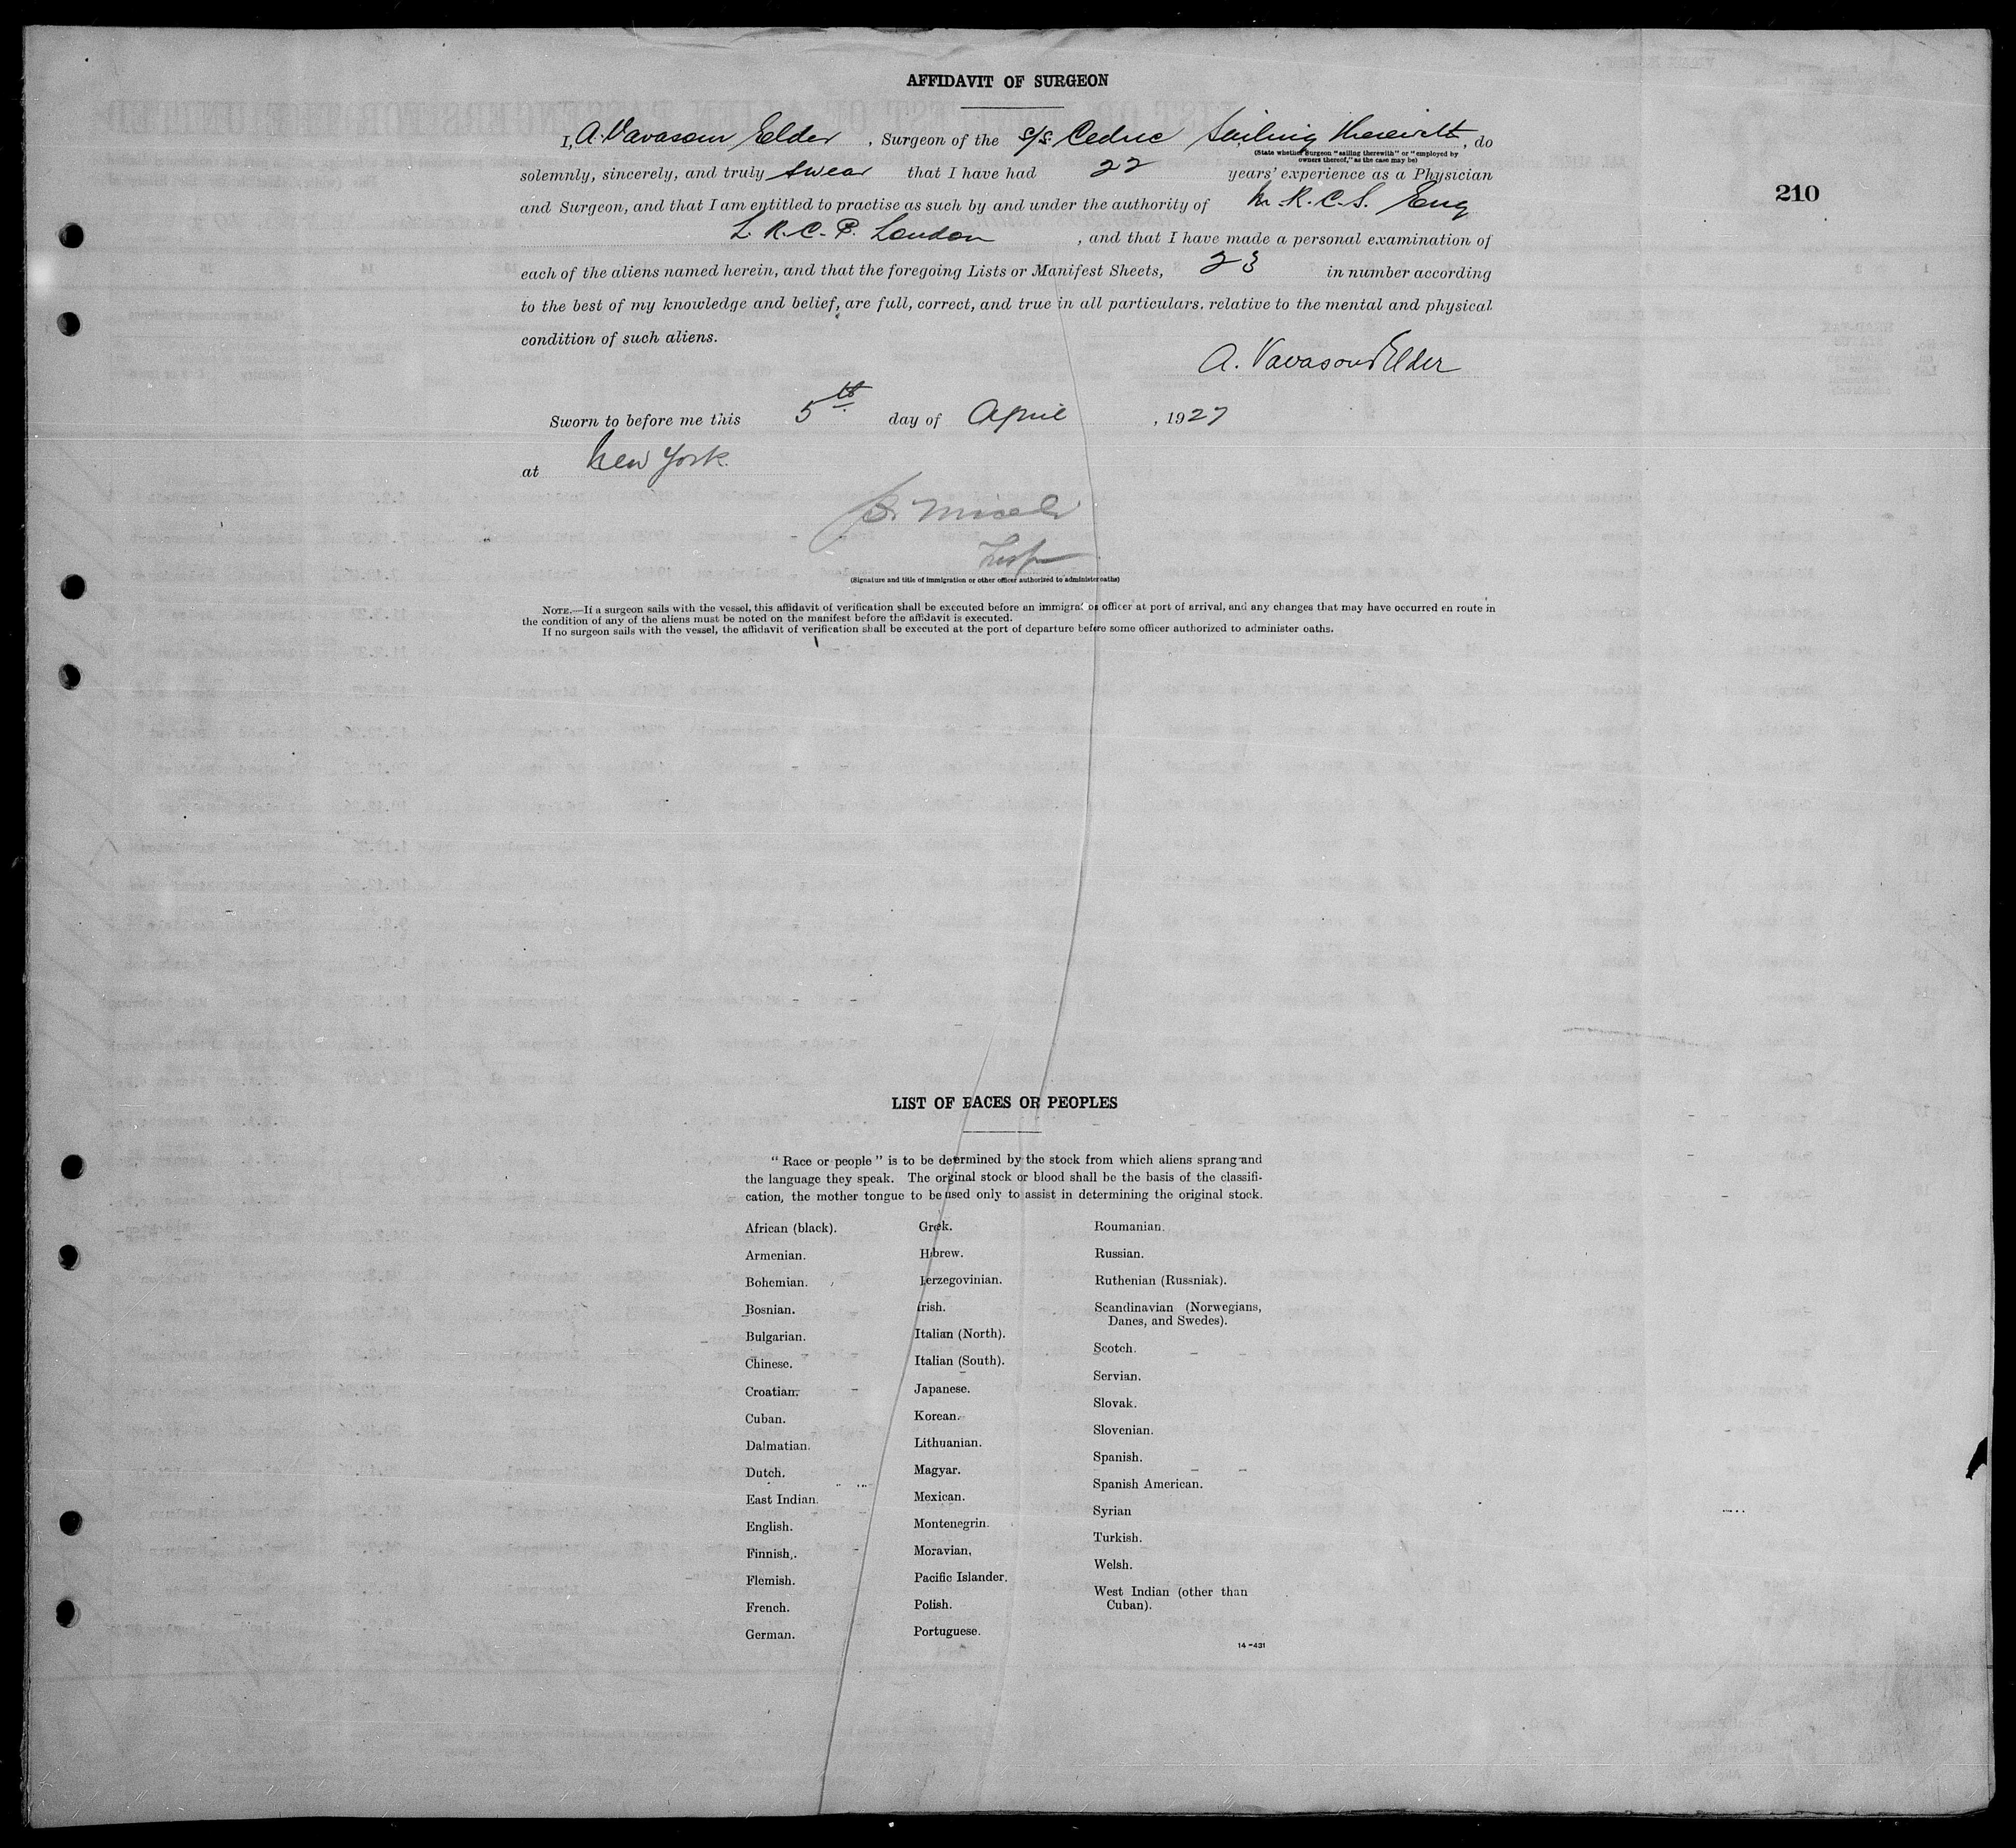 AFFIDAVIT OF SURGEON
I, A. Vavasour Elder, Surgeon of the s/s. Cedric Sailing therewith, do
(State whether Surgeon "sailing therewith" or "employed by
owners thereof," as the case may be)
solemnly, sincerely, and truly swear that I have had 22 years' experience as a Physician
210
and Surgeon, and that I am entitled to practise as such by and under the authority of M.R.C.S. Eng
L.R.C.P. London, and that I have made a personal examination of
each of the aliens named herein, and that the foregoing Lists or Manifest Sheets, 23 in number according
to the best of my knowledge and belief, are full, correct, and true in all particulars, relative to the mental and physical
condition of such aliens.
A. Vavasour Elder
Sworn to before me this 5th day of April, 1927
at New York.
Insp
(Signature and title of immigration or other officer authorized to administer oaths)
NOTE.—If a surgeon sails with the vessel, this affidavit of verification shall be executed before an immigration officer at port of arrival, and any changes that may have occurred en route in
the condition of any of the aliens must be noted on the manifest before the affidavit is executed.
If no surgeon sails with the vessel, the affidavit of verification shall be executed at the port of departure before some officer authorized to administer oaths.
LIST OF RACES OR PEOPLES
"Race or people" is to be determined by the stock from which aliens sprang and
the language they speak. The original stock or blood shall be the basis of the classifi-
cation, the mother tongue to be used only to assist in determining the original stock.
African (black).
Armenian.
Bohemian.
Bosnian.
Bulgarian.
Chinese.
Croatian.
Cuban.
Dalmatian.
Dutch.
East Indian.
English.
Finnish.
Flemish.
French.
German.
Greek.
Hebrew.
Herzegovinian.
Irish.
Italian (North).
Italian (South).
Japanese.
Korean.
Lithuanian.
Magyar.
Mexican.
Montenegrin.
Moravian.
Pacific Islander.
Polish.
Portuguese.
Roumanian.
Russian.
Ruthenian (Russniak).
Scandinavian (Norwegians,
Danes, and Swedes).
Scotch.
Servian.
Slovak.
Slovenian.
Spanish.
Spanish American.
Syrian
Turkish.
Welsh.
West Indian (other than
Cuban).
14-431